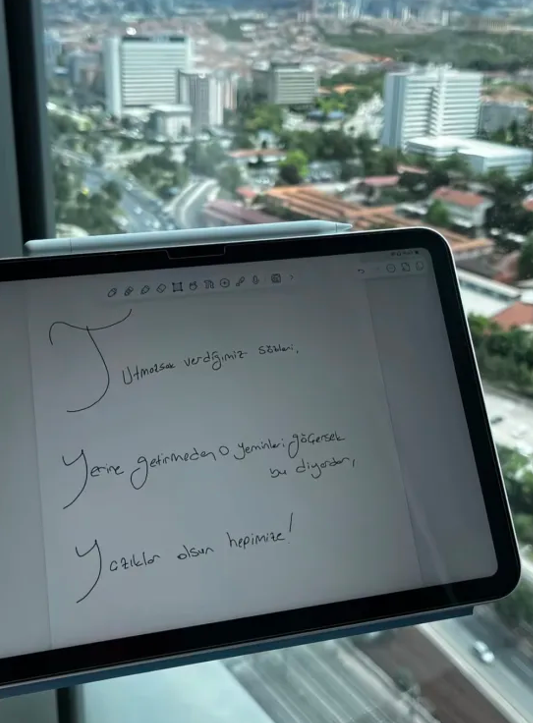 Tutmazsak verdiğimiz sözleri,
Yerine getirmeden o yeminleri göçersek
bu diyardan,
Yazıklar olsun hepimize!